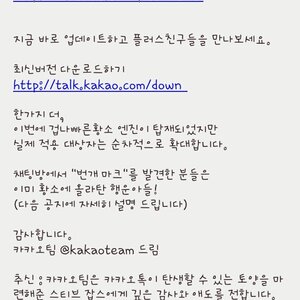 지금 바로 업데이트하고 플러스친구들을 만나보세요.
최신버전 다운로드하기
http://talk.kakao.com/down
한가지 더,
이번에 겁나빠른황소 엔진이 탑재되었지만
실제 적용 대상자는 순차적으로 확대합니다.
채팅방에서 "번개 마크"를 발견한 분들은
이미 황소에 올라탄 행운아들!
(다음 공지에 자세히 설명 드립니다)
감사합니다.
카카오팀 @kakaoteam 드림
추신 : 카카오팀은 카카오톡이 탄생할 수 있는 토양을 마
련해준 스티브 잡스에게 깊은 감사와 애도를 전합니다.